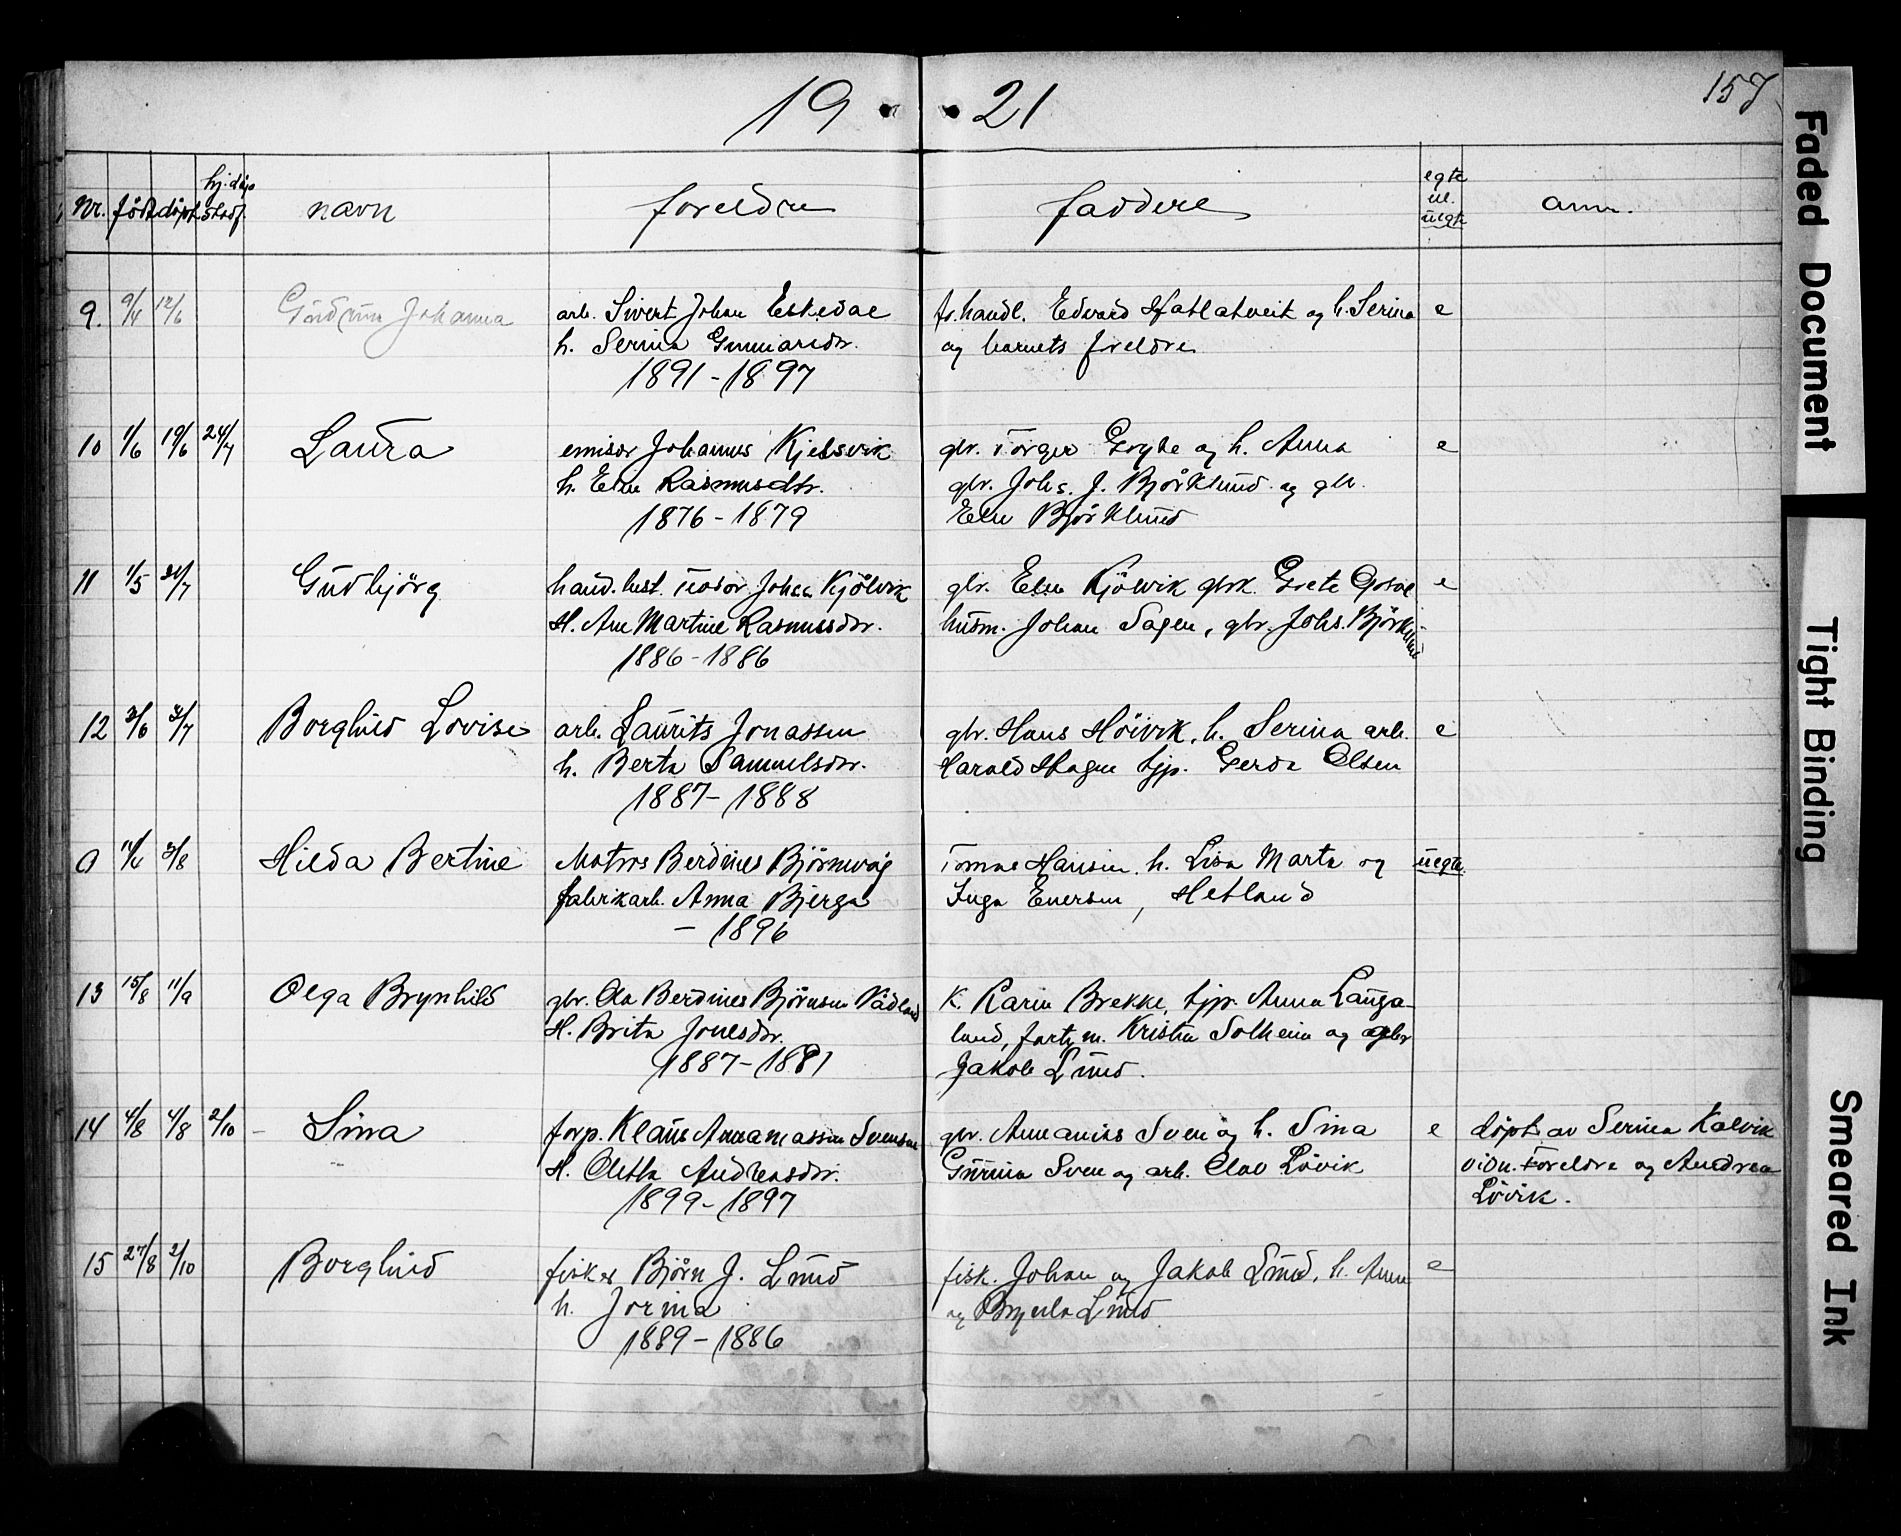 19 21
157
Nr. født døpt hj.døp stadf. navn foreldre faddere egte el. uegte anm.
9. 9/4 12/6 Gudrun Johanna arb. Sivert Johan Eskedal fv.handl. Edvard og h. Serina e
h. Serina Gunnarsdr. og barnets foreldre
1891-1897
10 1/6 19/6 24/7 Laura emisær Johannes Kjelsvik gbr. Torger og h. Anna e
h. Else Rasmusdtr. gbr. Johs. J. Björklund og gbr.
1876-1879 Else Björklund
11 1/5 31/7 Gudbjörg hand.best. Teodor Johan Kjölvik gbr. Else Kjölvik gbrk. Grete e
H. Ane Martine Rasmusdr. husm. Johan Sagen, gbr. Johs. Björklund
1886-1886
12 3/6 31/7 Borghild Lovise arb. Laurits Jonassen gbr. Hans Höivik, h. Serina arb. e
h. Berta Samuelsdr. Harald Hagen tjp. Gerda Olsen
1887-1888
0 11/6 /8 Hilda Bertine Matros Berdines Björnevåg Tomas Hansen. h. Lisa Marta og uegte.
fabrikarb. Anna Bjerga Inga Enersen, Hetland
- 1896
13 15/8 11/9 Olga Brynhild gbr. Ola Berdines Bjørnsen Vådland K. Karin Brekke, tjp. Anna Langa-
H. Brita Jonesdr. land, fartm. Kristen Solheim og gbr
1887-1881 Jakob Lund.
14 4/8 4/8 2/10 - Sina forp. Klaus Annanassen Svensen gbr. Annanias Sven og h. Sina e døpt av Serina Kalvik
H. Oletta Andreasdr. Gurina Sven og arb. Olav Lövik vidn. Foreldre og Andrea
1899-1897 Lövik.
15 27/8 2/10 Borghild fisker Bjørn J. Lund fisk. Johan og Jakob Lund, h. Anne e
h. Jorina og Lund
1889-1886
Faded Document
Tight Binding
Smeared Ink